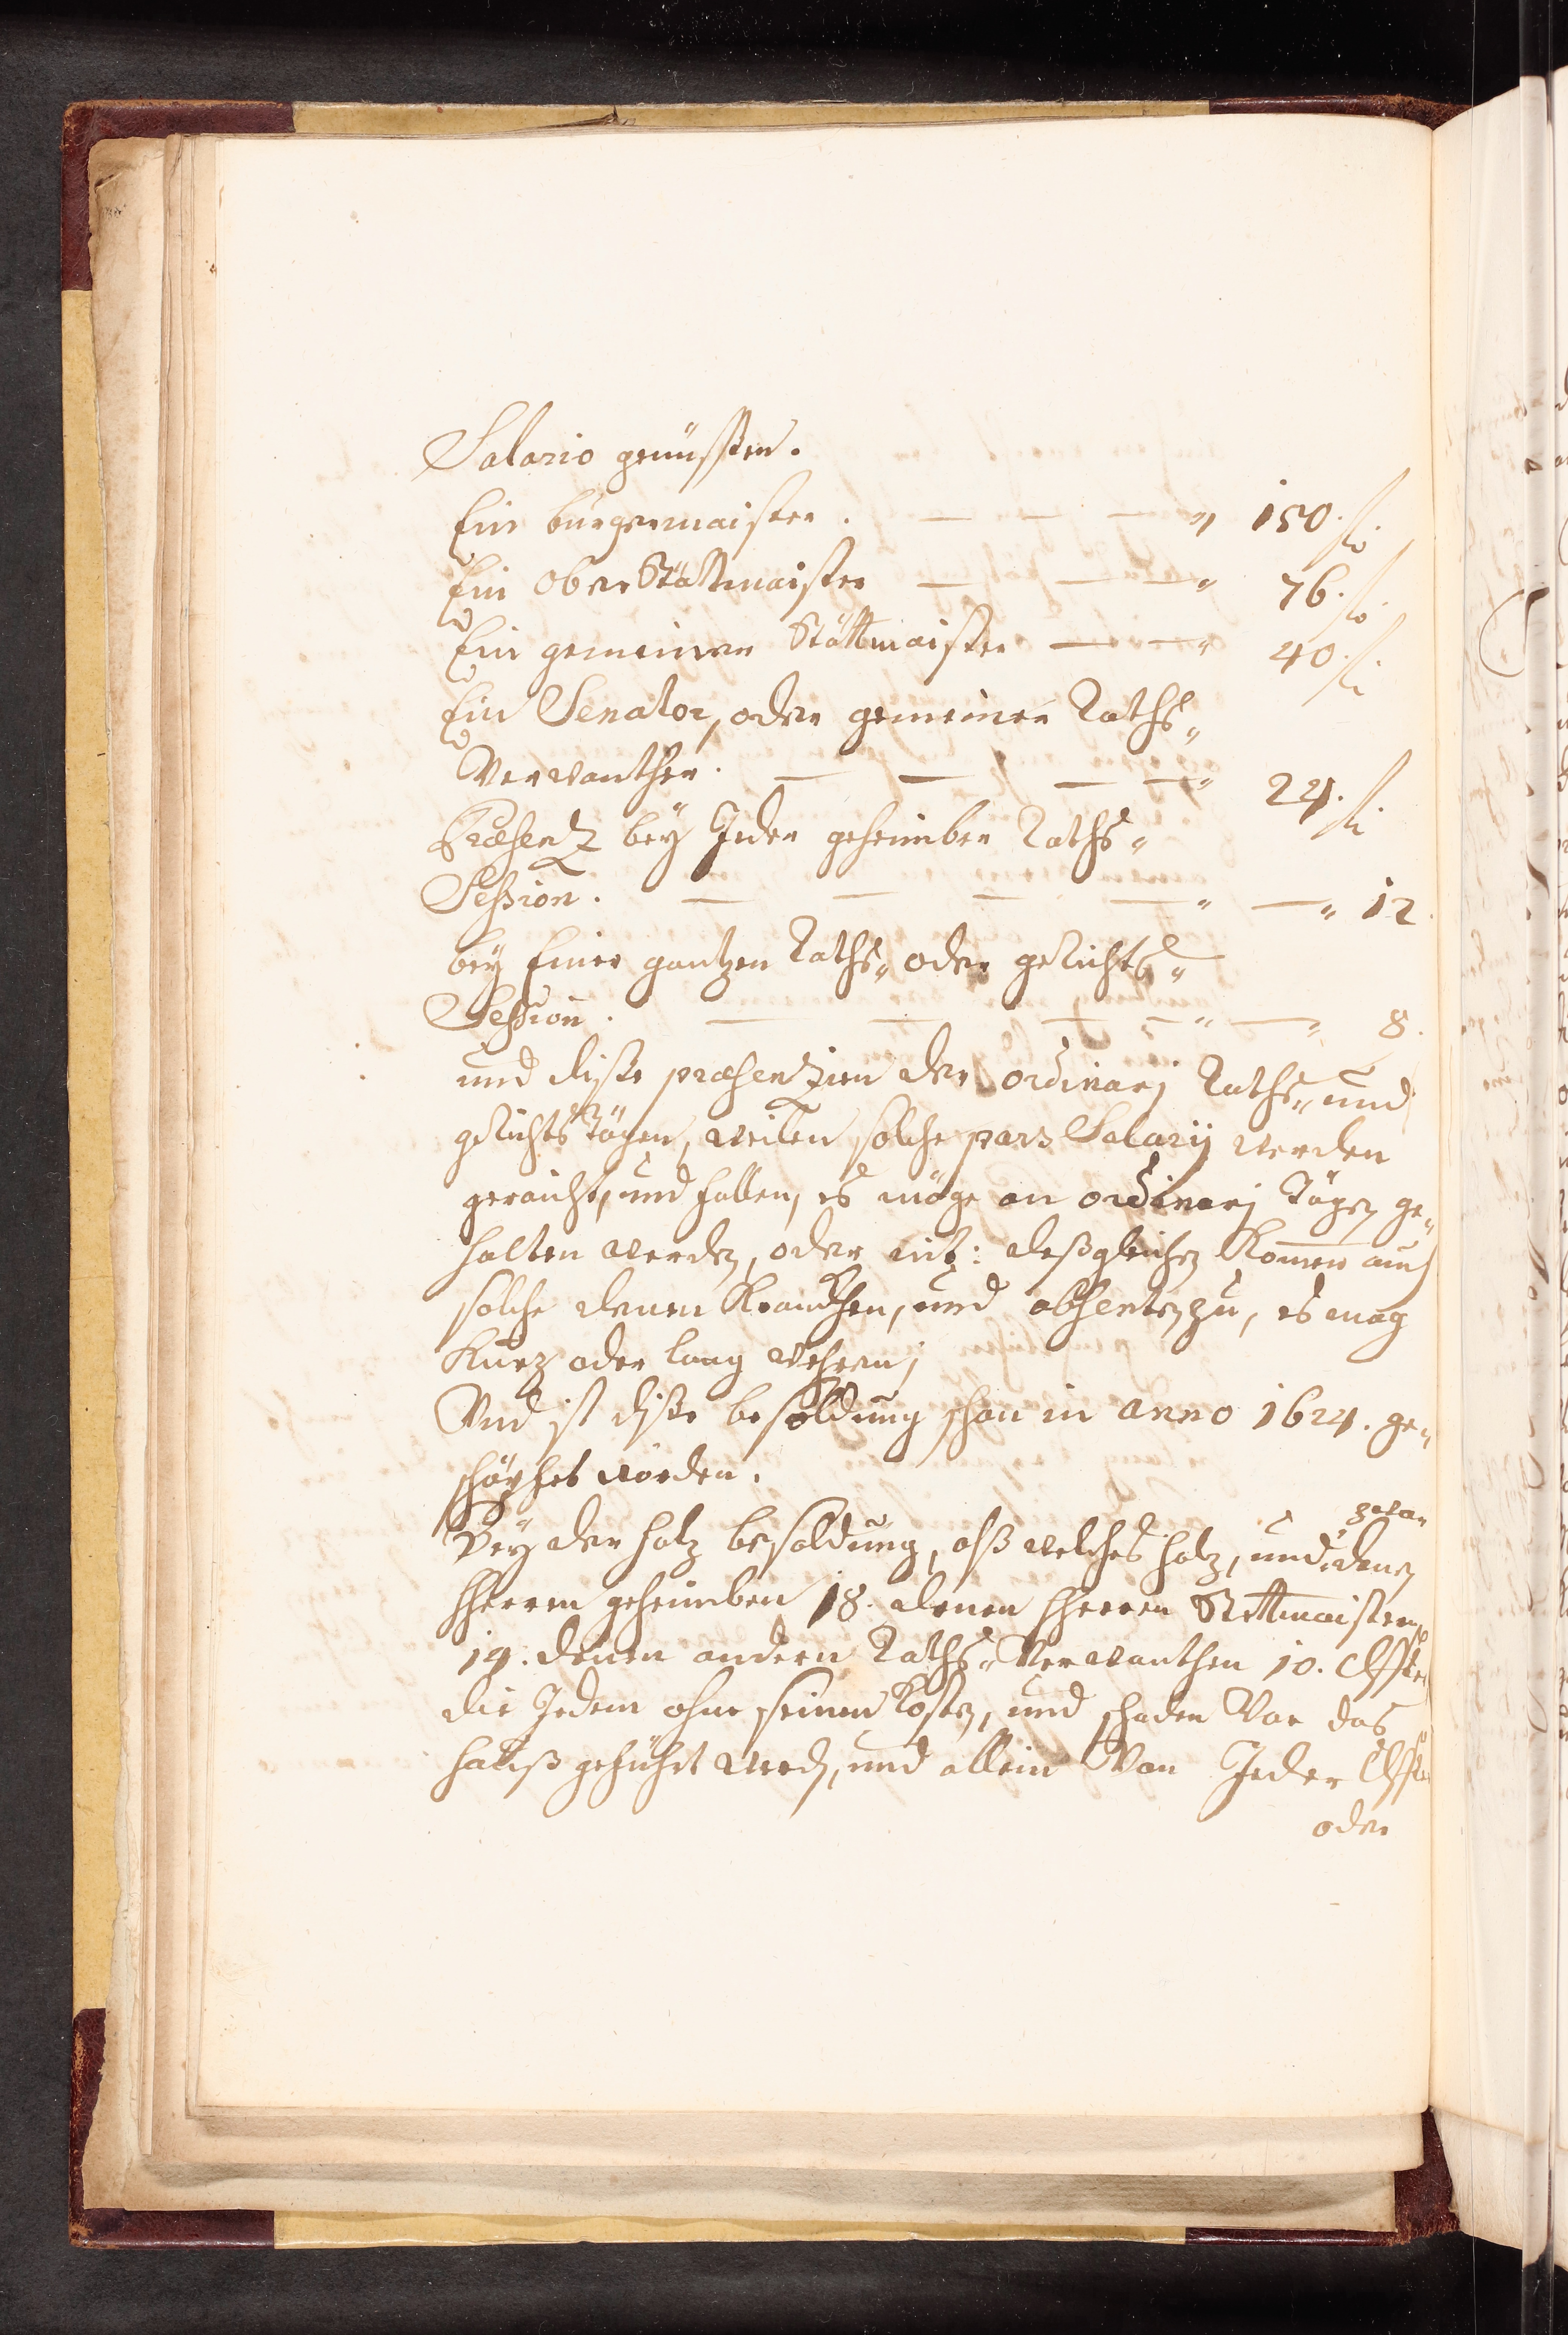 Salario genüssten.
Ein burgermaister. — — — „ 150. fl.
Ein Ober Stättmaister — — — „ 76. fl.
Ein gemeiner Stättmaister — — „ 40. fl.
Ein Senator, oder gemeiner Raths„
Verwanther. — — — — „ 24. fl.
Præsentz bey Jeder geheimben Raths„
Session. — — — — „ — „ 12.
bey Einer gantzen Raths„ oder gerichts„
Session. — — — — „ — „ 8.
und diße præsentzien der ordinarj Raths„ und
gerichts Tägen, weilen solche pars Salarij werden
geraicht, und fallen, es möge an ordinarj Tägen ge„
halten werden, oder nit: deßgleichen Komen auch
solche denen Krankhen, und absenten zu, es mag
Kurz oder lang wehren;
Und ist diße besoldung schon in anno 1624. ge„
schöpfet worden.
Bey der holz besoldung, alß welches holz, und zwar denen
hherren geheimben 18. denen hherren Stettmaistern
14. denen andern Raths„ Verwanthen 10. Clffter
die Jedem ohne seinen Costen, und schaden Vor das
hauß geführt werden, und allein Von Jeder Clffter
oder